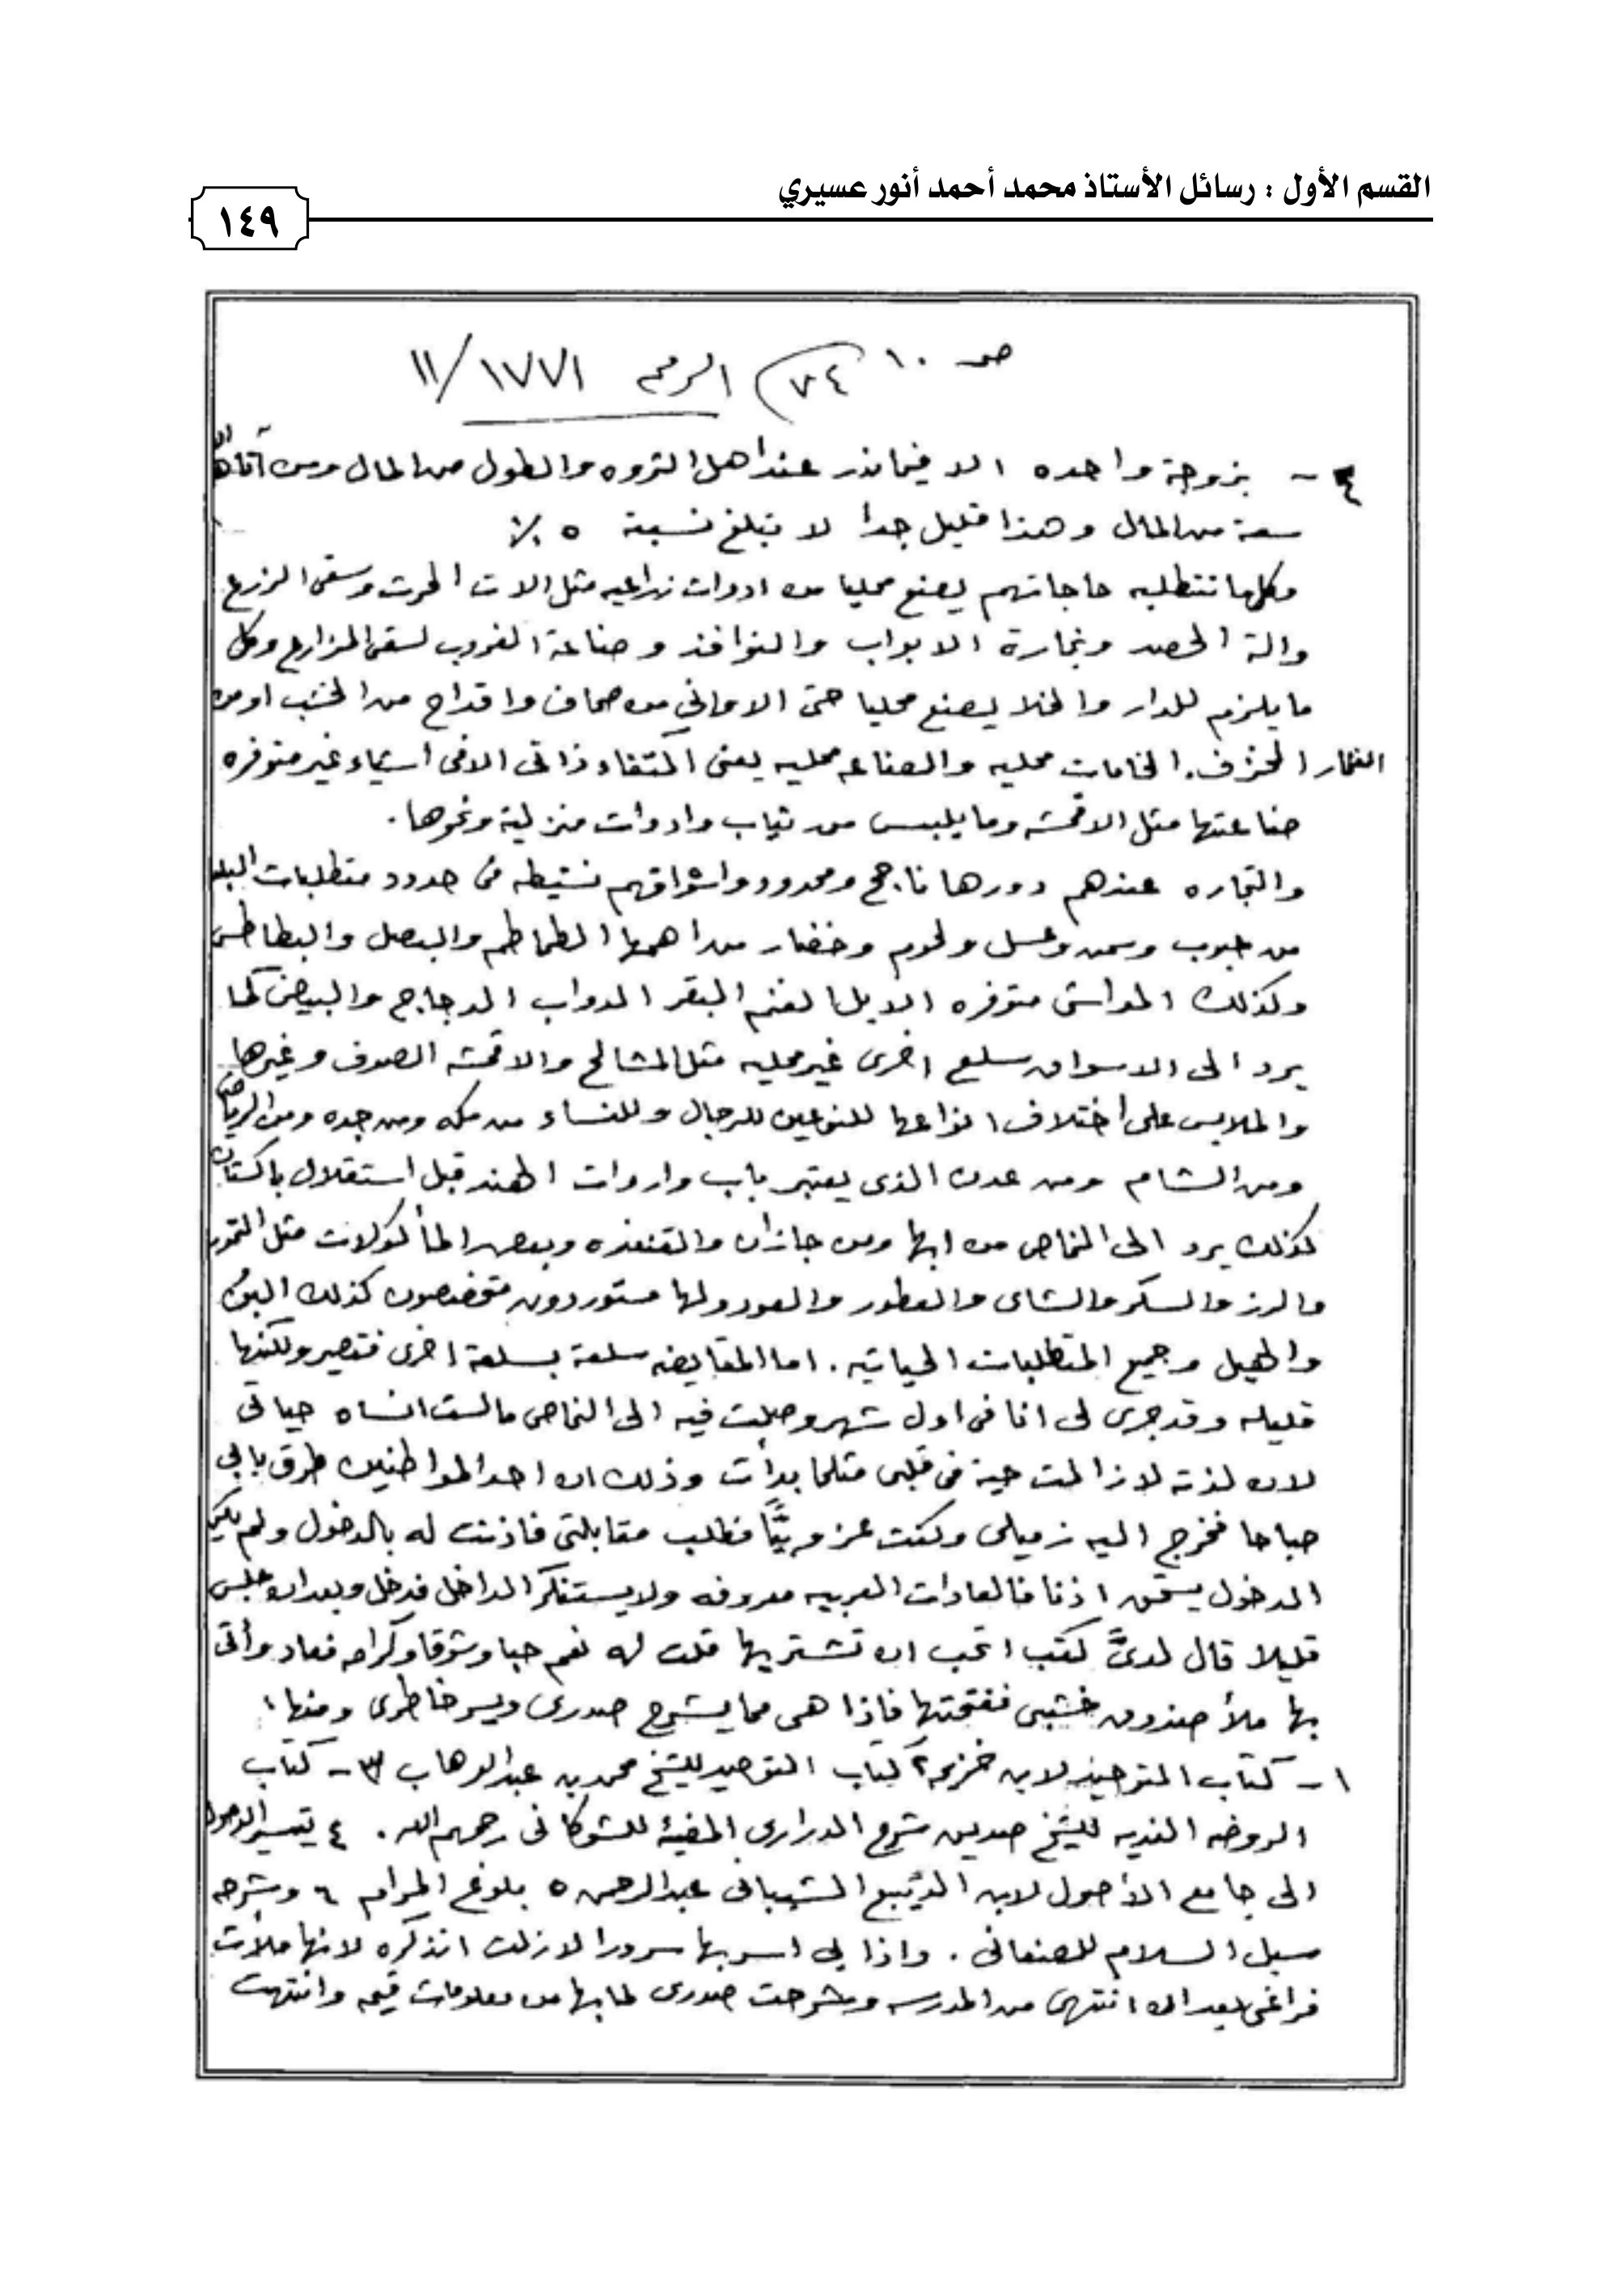 القسم الأول : رسائل الأستاذ محمد أحمد أنور عسيري
١٤٩
صـ ١٠ (٧٤ الرقم ١٧٧١/١١
٤ - بزوجة واحده الا فيما نذر عند اهل الثروه والطول من المال ومن آتاه الله
سعة من المال وهذا قليل جدا لا تبلغ نسبة ٥ ٪
وكلما تتطلبه حاجاتهم يصنع محليا من ادوات زراعيه مثل الات الحرث وسقى الزرع
والة الحصد ونجارة الابواب والنوافذ وصناعة الغروب لسقى المزارع وكل
ما يلزم للدار والخلا يصنع محليا حتى الاواني من صحاف واقداح من الخشب او من
الفخار الخزف. الخامات محليه والصناعه محليه يعنى اكتفاء ذاتى الا فى اشياء غير متوفره
صناعتها مثل الاقمشه وما يلبس من ثياب وادوات منزلية ونحوها.
والتجاره عندهم دورها ناجح ومحدود واسواقهم نشيطه فى حدود متطلبات البلد
من حبوب وسمن وعسل ولحوم وخضار من اهمها الطماطم والبصل والبطاطس
وكذلك المواشى متوفره الابل الغنم البقر الدواب الدجاج والبيض كما
يرد الى الاسواق سلع اخرى غير محليه مثل المشالح والاقمشه الصوف وغيرها
والملابس على اختلاف انواعها للنوعين للرجال وللنساء من مكه ومن جده ومن الرياض
ومن الشام ومن عدن الذى يعتبر باب واردات الهند قبل استقلال باكستان
كذلك يرد الى النماص من ابها ومن جازان والقنفذه وبعض المأكولات مثل التمور
والرز والسكر والشاى والعطور والعود ولها مستوردون متخصصون كذلك البن
والهيل وجميع المتطلبات الحياتيه . اما المقايضه سلعة بسلعة اخرى فتصير ولكنها
قليله وقد جرى لى انا فى اول شهر وصلت فيه الى النماص ما لست انساه حياتى
لان لذته لا زالت حية فى قلبى مثلما بدأت وذلك ان احد المواطنين طرق بابى
صباحا فخرج اليه زميلى وكنت عزوبيًّا فطلب مقابلتى فاذنت له بالدخول ولم يكن
الدخول يستحق اذنا فالعادات العربيه معروفه ولا يستنكر الداخل فدخل وبعد ان جلس
قليلا قال لدىَّ كتب اتحب ان تشتريها قلت له نعم حبا وشوقا وكرامه فعاد وأتى
بها ملأ صندوق خشبى ففتحتها فاذا هى مما يشرح صدرى ويسر خاطرى ومنها:
١ - كتاب التوحيد لابن خزيمه ٢ كتاب التوحيد للشيخ محمد بن عبدالوهاب ٣ - كتاب
الروضه النديه للشيخ صديق شرح الدرارى المضيئة للشوكانى رحمهم الله . ٤ تيسير الوصول
الى جامع الأصول لابن الدَّيبع الشيبانى عبدالرحمن ٥ بلوغ المرام ٦ وشرحه
سبل السلام للصنعانى . واذا بى اسر بها سرورا لازلت اتذكره لانها ملأت
فراغى بعد ان انتهى من المدرسه وشرحت صدرى لما بها من معلومات قيمه وانتهت